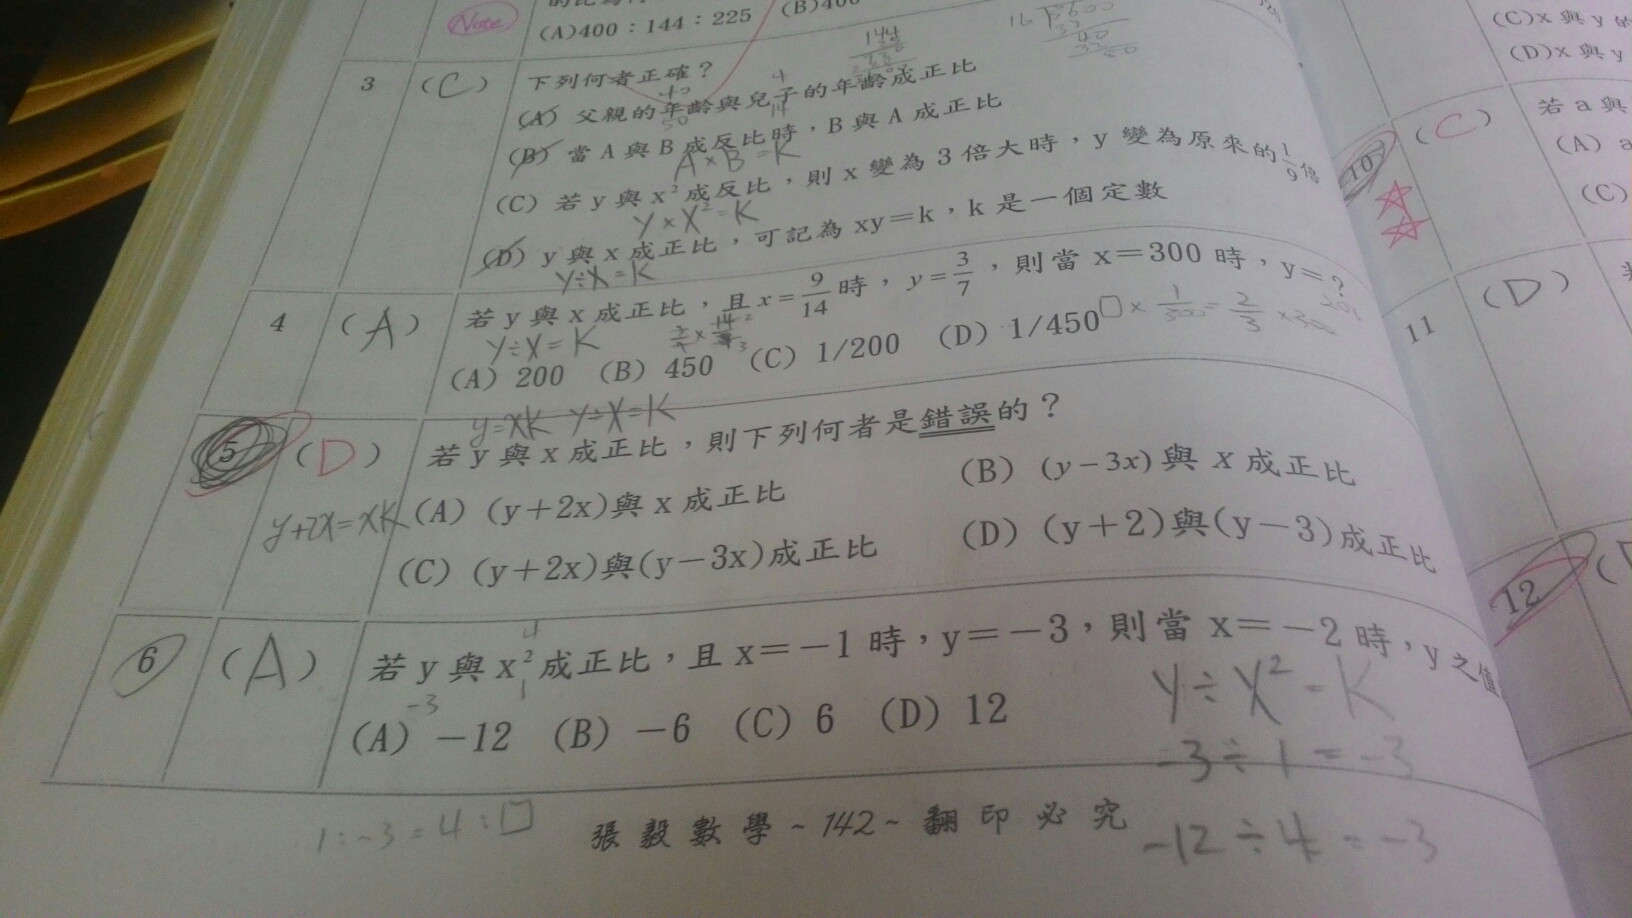 Note
(A)400：144：225 (B)400
3 (C) 下列何者正確？
(A) 父親的年齡與兒子的年齡成正比
(B) 當 A 與 B 成反比時，B 與 A 成正比
A×B=K
(C) 若 y 與 x² 成反比，則 x 變為 3 倍大時，y 變為原來的 1/9 倍
Y×X²=K
(D) y 與 x 成正比，可記為 xy＝k，k 是一個定數
Y÷X=K
4 (A) 若 y 與 x 成正比，且 x=9/14 時，y=3/7，則當 x＝300 時，y＝？
Y÷X=K
□×1/300=2/3×300
(A) 200 (B) 450 (C) 1/200 (D) 1/450
y=xK Y÷X=K
5 (D) 若 y 與 x 成正比，則下列何者是錯誤的？
(A) (y＋2x)與 x 成正比 (B) (y－3x)與 x 成正比
y+2x=xK
(C) (y＋2x)與(y－3x)成正比 (D) (y＋2)與(y－3)成正比
6 (A) 若 y 與 x² 成正比，且 x＝－1 時，y＝－3，則當 x＝－2 時，y 之值
(A) －12 (B) －6 (C) 6 (D) 12
Y÷X²=K
-3÷1=-3
-12÷4=-3
1:-3=4:□
張毅數學~142~翻印必究
(C)x 與 y 的
(D)x 與 y
10 (C) 若 a 與
(A) a
(C)
11 (D)
12